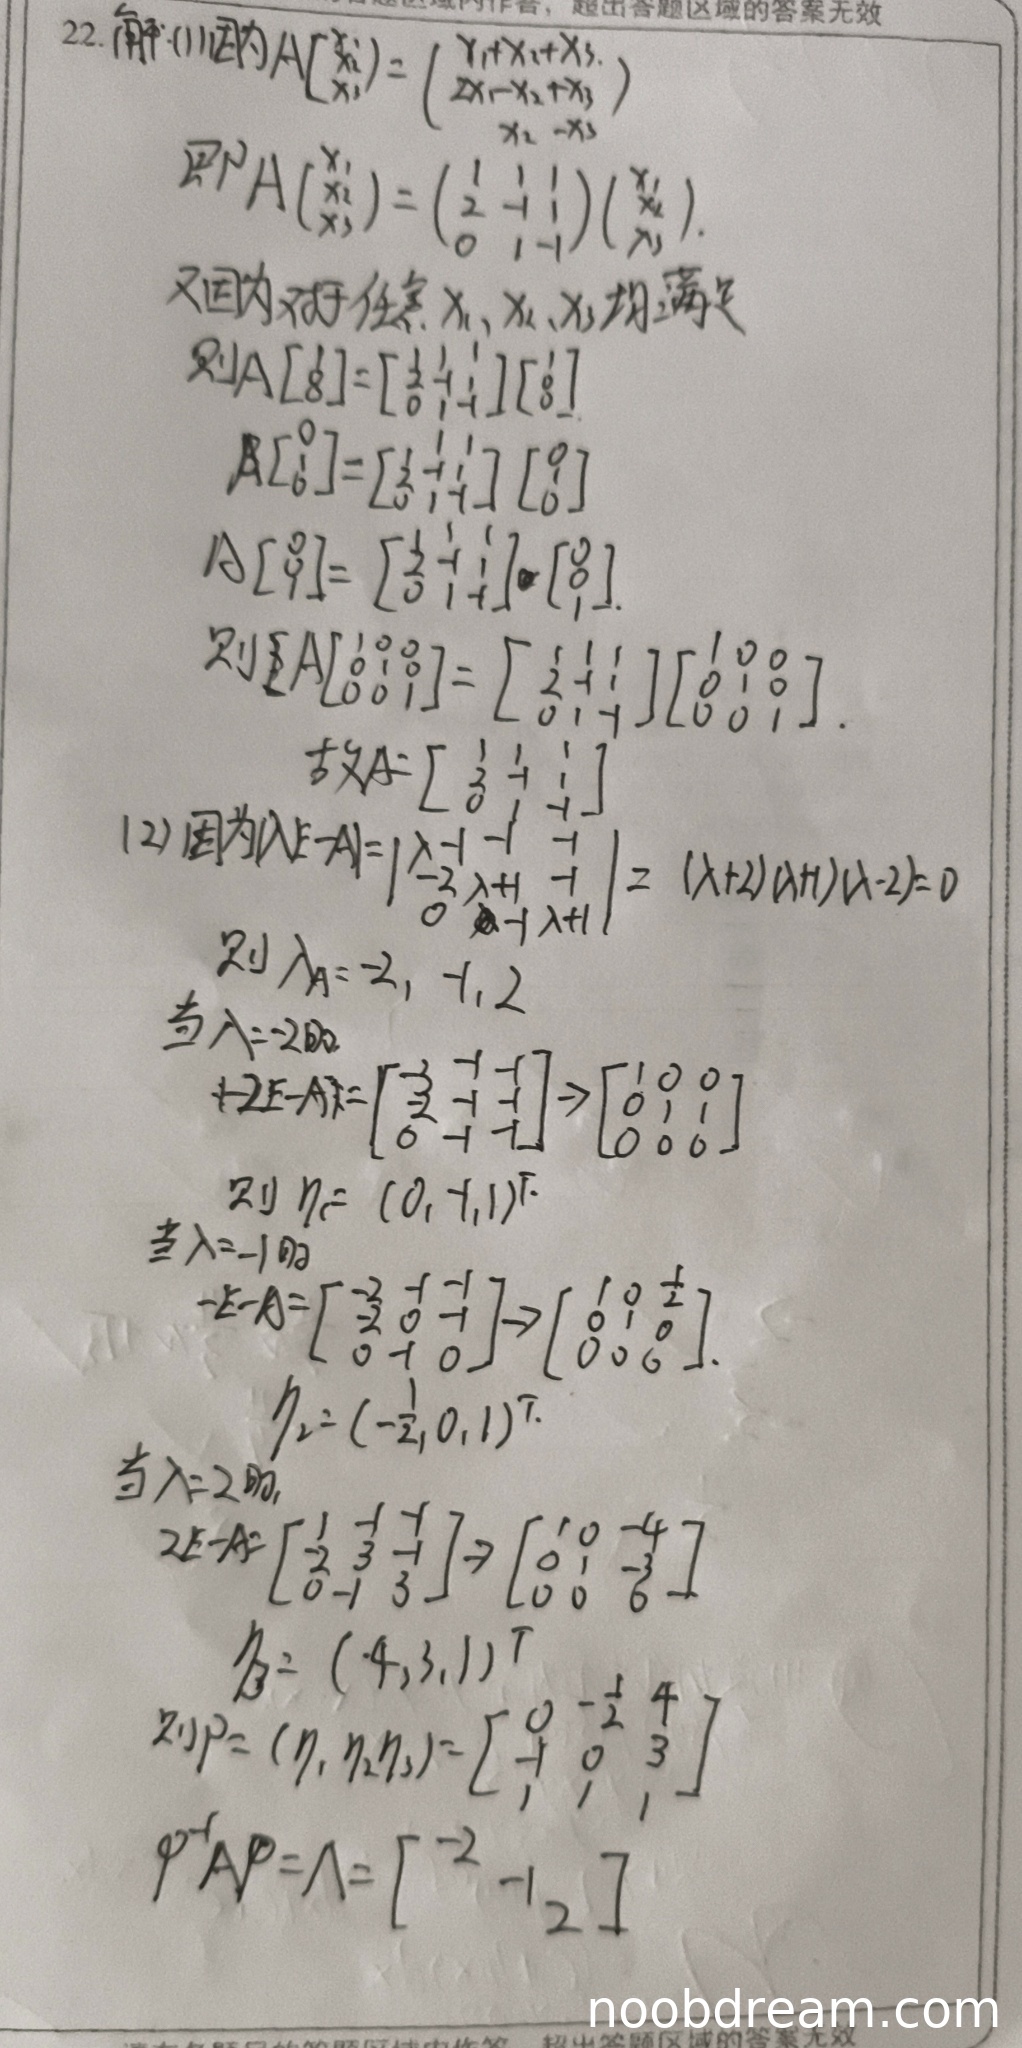 答题区域内作答，超出答题区域的答案无效
22. 解：(1)因为A[x₁ x₂ x₃] = (x₁+x₂+x₃. 2x₁-x₂+x₃ x₂ -x₃)
即A(x₁ x₂ x₃) = (1 1 1 2 -1 1 0 1 -1)(x₁ x₂ x₃).
又因为对于任意 x₁、x₂、x₃均满足
则A[1 0 0] = [1 1 1 2 -1 1 0 1 -1][1 0 0]
A[0 1 0] = [1 1 1 2 -1 1 0 1 -1][0 1 0]
A[0 0 1] = [1 1 1 2 -1 1 0 1 -1][0 0 1].
则A[1 0 0 0 1 0 0 0 1] = [1 1 1 2 -1 1 0 1 -1][1 0 0 0 1 0 0 0 1].
故A=[1 1 1 2 -1 1 0 1 -1]
(2)因为|λE-A|=|λ-1 -1 -1 -2 λ+1 -1 0 -1 λ+1| = (λ+2)(λ+1)(λ-2)=0
则 λA=-2, -1, 2
当λ=-2时
-2E-A=[-3 -1 -1 -2 -1 -1 0 -1 -1]→[1 0 0 0 1 1 0 0 0]
则 η₁= (0,-1,1)ᵀ.
当λ=-1时
-E-A=[-2 -1 -1 -2 0 -1 0 -1 0]→[1 0 1/2 0 1 0 0 0 0].
η₂=(-1/2,0,1)ᵀ.
当λ=2时,
2E-A=[1 -1 -1 -2 3 -1 0 -1 3]→[1 0 -4 0 1 -3 0 0 0]
η₃= (4,3,1)ᵀ
则P= (η₁ η₂ η₃)=[0 -1/2 4 -1 0 3 1 1 1]
P⁻¹AP=Λ=[-2 -1 2]
noobdream.com
超出答题区域的答案无效